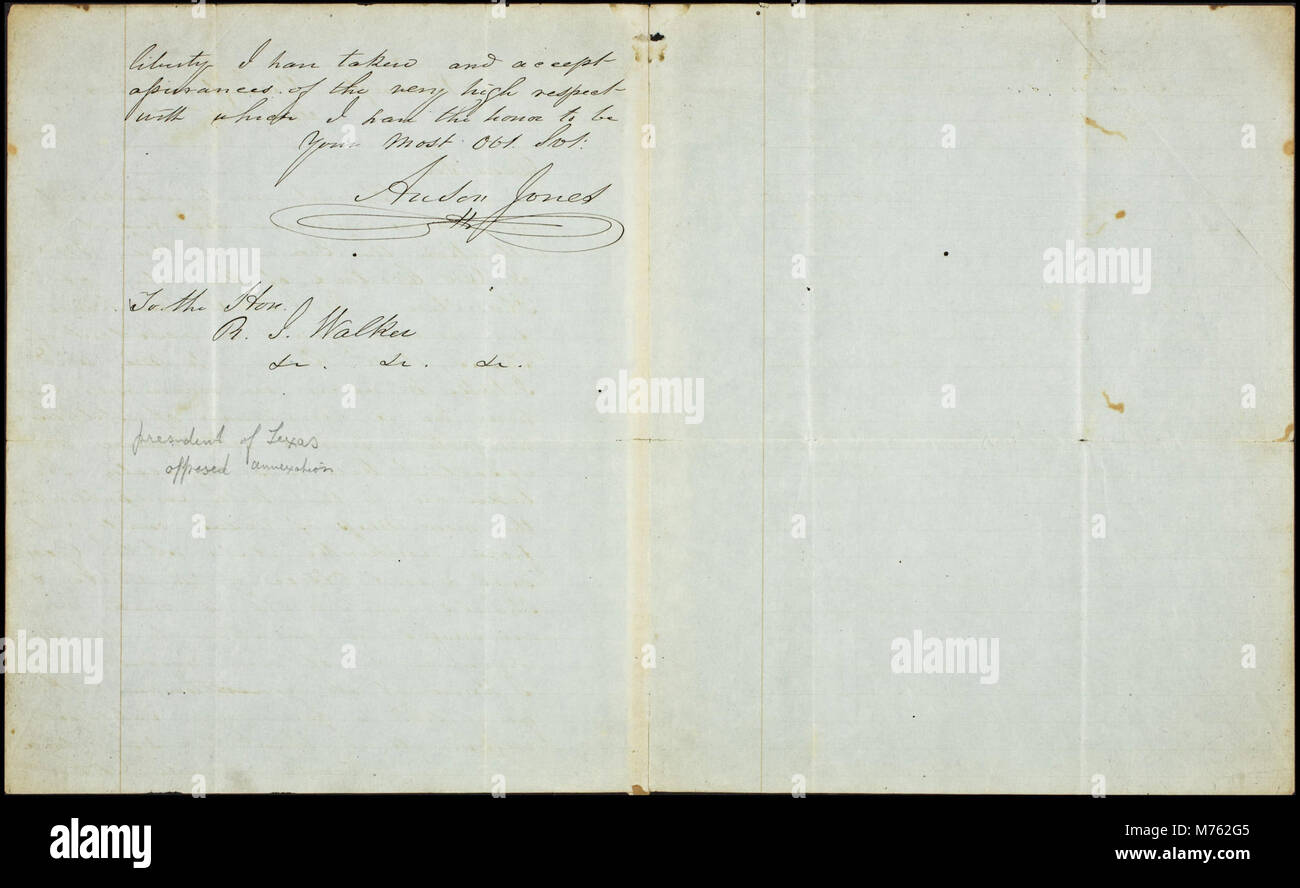 liberty I have taken and accept
assurances of the very high respect
with which I have the honor to be
Your Most Obt. Svt.
Anson Jones
To the Hon.
R. J. Walker
&c. &c. &c.
president of Texas
opposed annexation
alamy
alamy
alamy
alamy
alamy
alamy
Image ID: M762G5
www.alamy.com